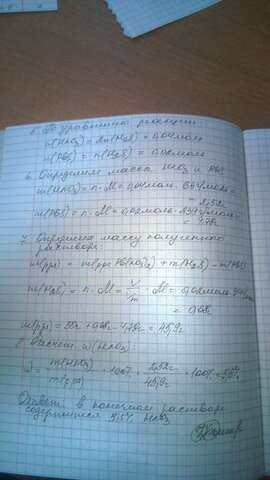 5. По уравнению реакции
n(HNO₃) = 2n(H₂S) = 0,04моль
n(PbS) = n(H₂S) = 0,02моль
6. Определим массы HNO₃ и PbS
m(HNO₃) = n · M = 0,04моль · 63г/моль =
= 2,52г
m(PbS) = n · M = 0,02моль · 239г/моль =
= 4,78г
7. Определим массу полученного
раствора:
m(р-ра) = m(р-ра Pb(NO₃)₂) + m(H₂S) - m(PbS)
m(H₂S) = n · M = V/Vm · M = 0,02моль
= 0,68г
8. Рассчит. ω(HNO₃):
ω = m(HNO₃)/m(р-ра) · 100% = 2,52г/45,9г · 100% = 5,5%
Ответ: в конечном растворе
содержится 5,5% HNO₃